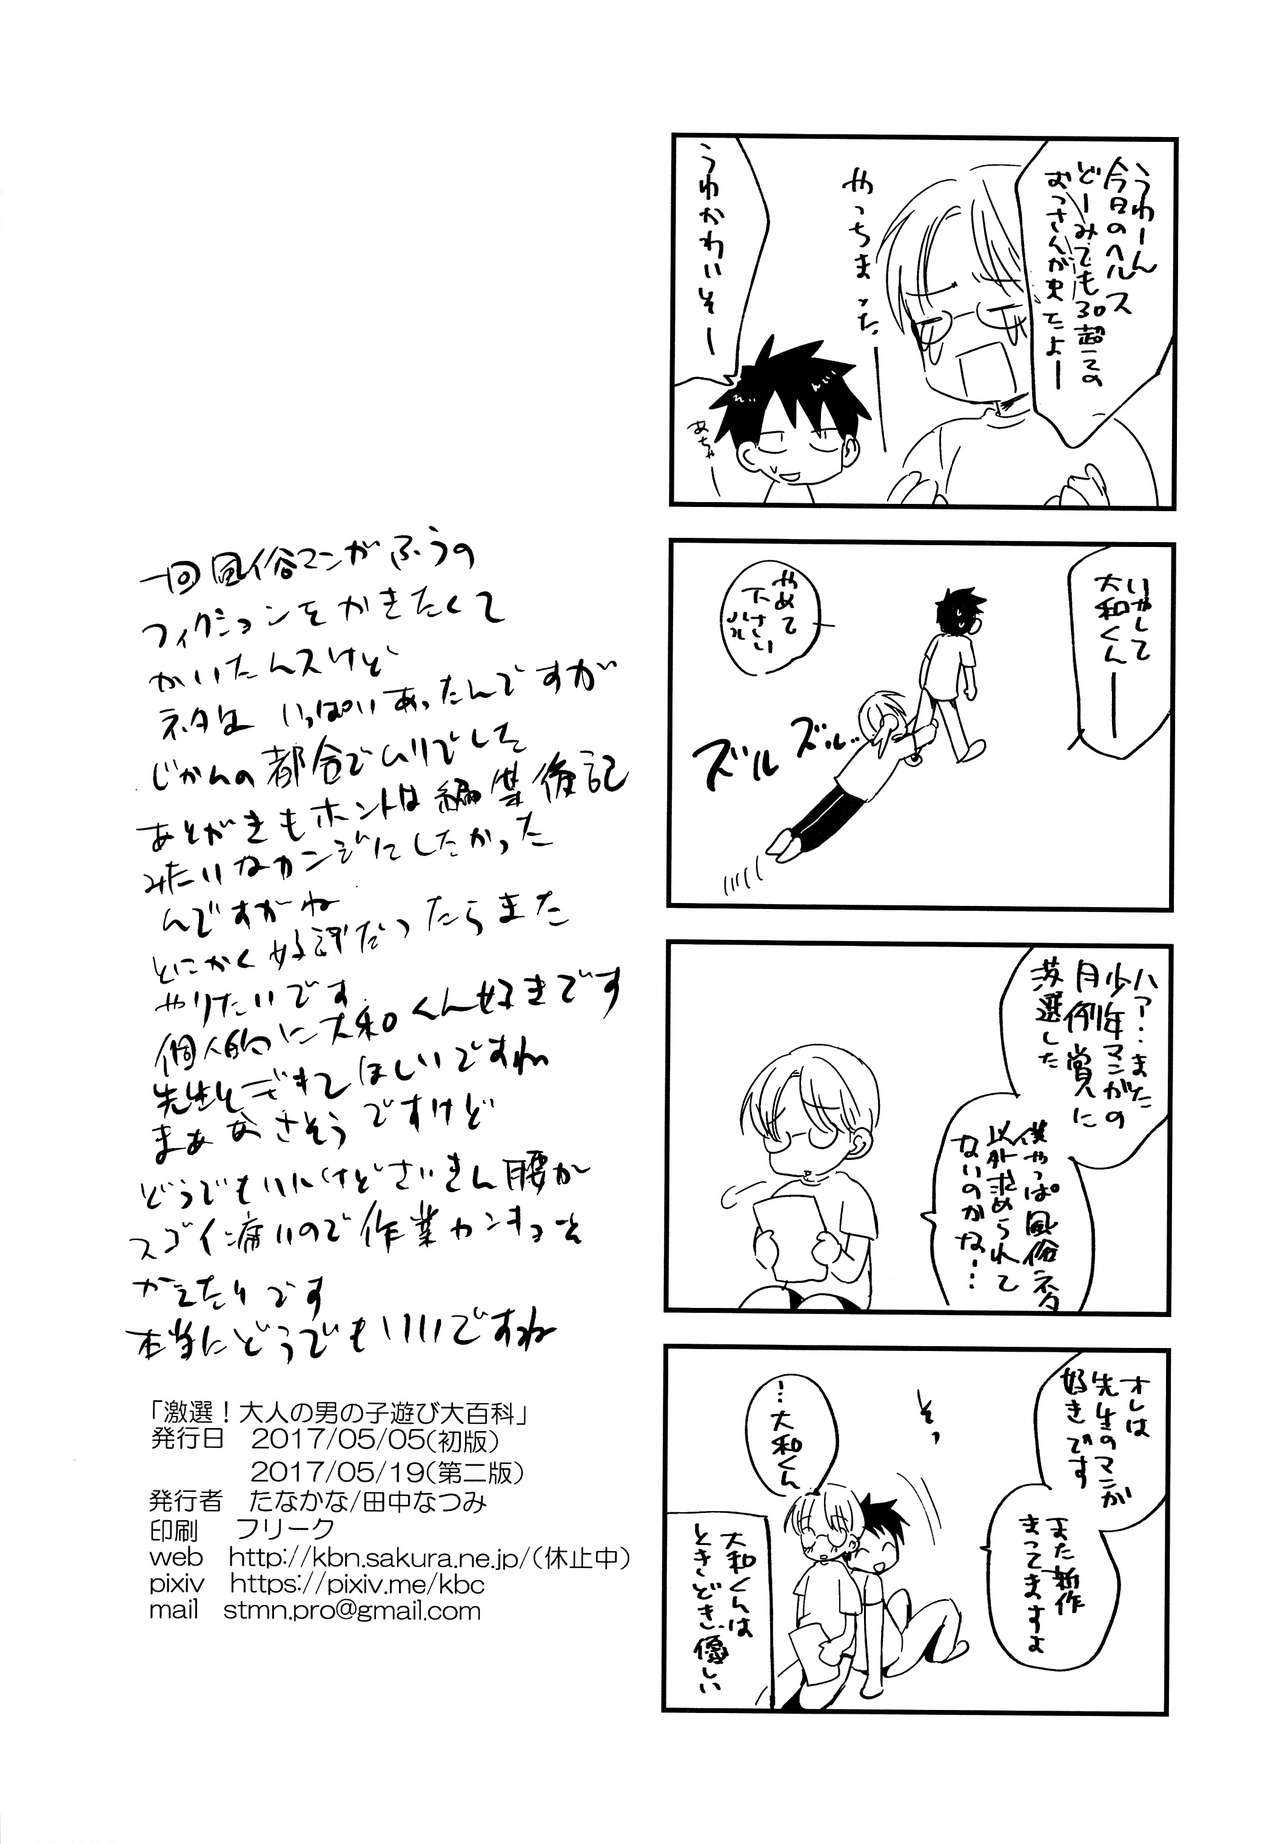 うわーん
今日のヘルス
どーみても30超えの
おっさんが来たよー
やっちまったー
うわかわいそー
あちゃー
いやして
大和くんー
やめて
下さい
ズルズル
ハァ…また
少年マンガの
月例賞に
落選した
僕やっぱ風俗ネタ
以外求められて
ないのかな…
オレは
先生のマンガ
好きです
また新作
まってますよ
そっ
…大和くん
大和くんは
ときどき優しい
一回風俗マンガふうの
フィクションをかきたくて
かいたんスけど
ネタは いっぱいあったんですが
じかんの都合でムリでした
あとがきもホントは編集後記
みたいなカンジにしたかった
んですがね
とにかく好評だったらまた
やりたいです
個人的に大和くん好きです
先生とデキてほしいですね
まぁなさそうですけど
どうでもいいけどさいきん腰が
スゴイ痛いので作業カンキョーを
かえたいです
本当にどうでもいいですね
「激選！大人の男の子遊び大百科」
発行日 2017/05/05(初版)
2017/05/19(第二版)
発行者 たなかな/田中なつみ
印刷 フリーク
web http://kbn.sakura.ne.jp/(休止中)
pixiv https://pixiv.me/kbc
mail stmn.pro@gmail.com